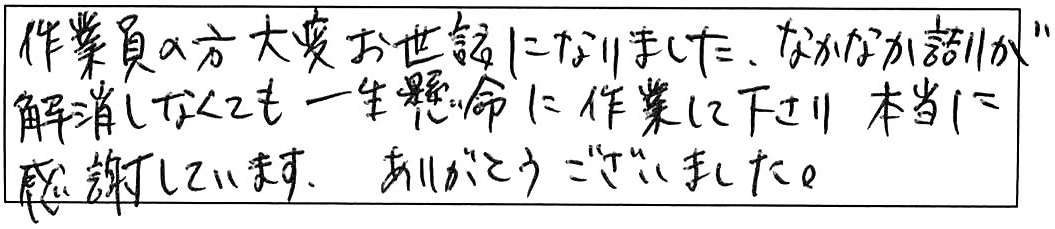 作業員の方大変お世話になりました、なかなか詰りが
解消しなくても一生懸命に作業して下さり 本当に
感謝しています、 ありがとうございました。